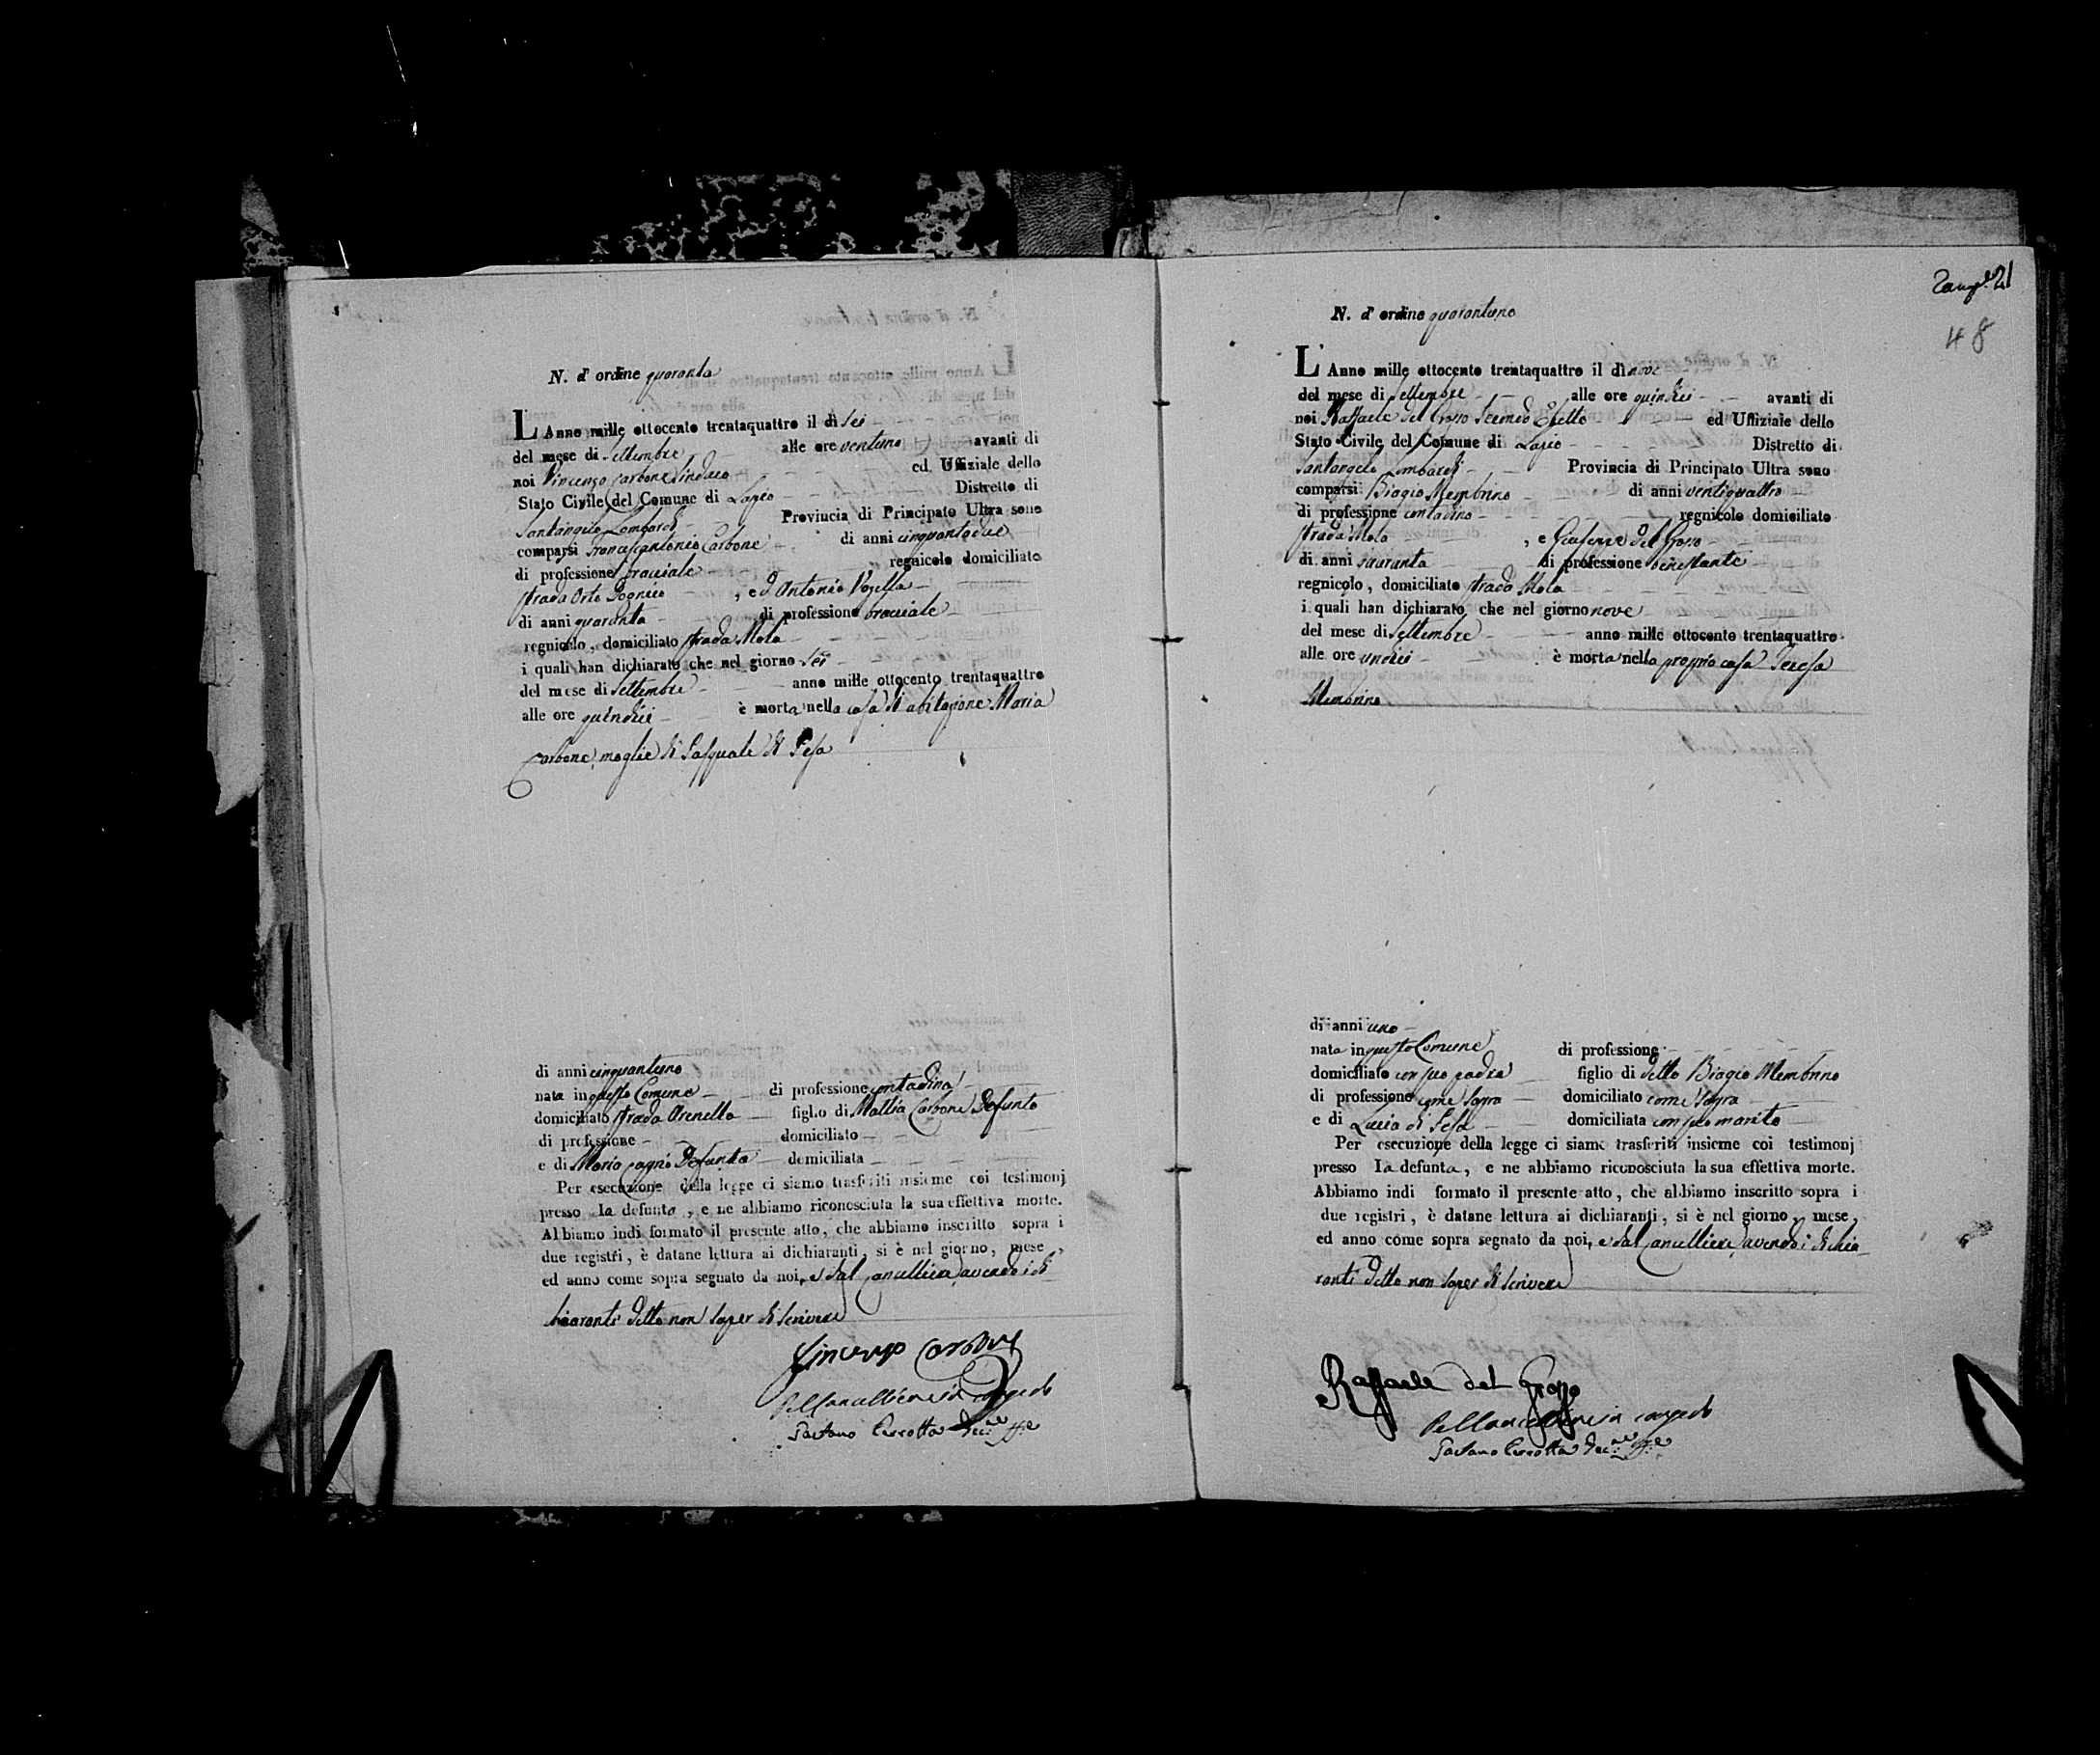 N. d' ordine quaranta
L'Anno mille ottocento trentaquattro il dì sei
del mese di Settembre alle ore ventuno avanti di
noi Vincenzo Carbone Sindaco ed Uffiziale dello
Stato Civile del Comune di Lapio Distretto di
Santangelo Lombardi Provincia di Principato Ultra sono
comparsi Francescantonio Carbone di anni cinquantadue
di professione bracciale regnicolo domiciliato
strada Orto , ed Antonio Vozella
di anni quaranta di professione bracciale
regnicolo, domiciliato strada Mola
i quali han dichiarato che nel giorno sei
del mese di Settembre anno mille ottocento trentaquattro
alle ore quindici è morta nella casa di abitazione Maria
Carbone, moglie di Pasquale di Fesa
di anni cinquantuno
nata in questo Comune di professione contadina
domiciliato strada Arenella figlio di Mattia Carbone Defunto
di professione domiciliato
e di Maria Defunta domiciliata
Per esecuzione della legge ci siamo trasferiti insieme coi testimonj
presso la defunta, e ne abbiamo riconosciuta la sua effettiva morte.
Abbiamo indi formato il presente atto, che abbiamo inscritto sopra i
due registri, è datane lettura ai dichiaranti, si è nel giorno, mese,
ed anno come sopra segnato da noi, e dal Cancelliere avendo i di
chiaranti detto non saper di scrivere
Vincenzo Carbone
Pel Cancelliere in congedo
Gaetano
Zamp. 21
48
N. d' ordine quarantuno
L'Anno mille ottocento trentaquattro il dì nove
del mese di Settembre alle ore quindici avanti di
noi Raffaele del Grosso Secondo Eletto ed Uffiziale dello
Stato Civile del Comune di Lapio Distretto di
Santangelo Lombardi Provincia di Principato Ultra sono
comparsi Biagio Membrino di anni ventiquattro
di professione contadino regnicolo domiciliato
strada Mola , e Giuseppe del Grosso
di anni quaranta di professione benestante
regnicolo, domiciliato strada Mola
i quali han dichiarato che nel giorno nove
del mese di Settembre anno mille ottocento trentaquattro
alle ore undici è morta nella propria casa Teresa
Membrino
di anni uno
nata in questo Comune di professione
domiciliato con suo padre figlio di detto Biagio Membrino
di professione come sopra domiciliato come sopra
e di Lucia di Fesa domiciliata con suo marito
Per esecuzione della legge ci siamo trasferiti insieme coi testimonj
presso la defunta, e ne abbiamo riconosciuta la sua effettiva morte.
Abbiamo indi formato il presente atto, che abbiamo inscritto sopra i
due registri, è datane lettura ai dichiaranti, si è nel giorno, mese,
ed anno come sopra segnato da noi, e dal Cancelliere avendo i dichia
ranti detto non saper di scrivere
Raffaele del Grosso
Pel Cancelliere in congedo
Gaetano